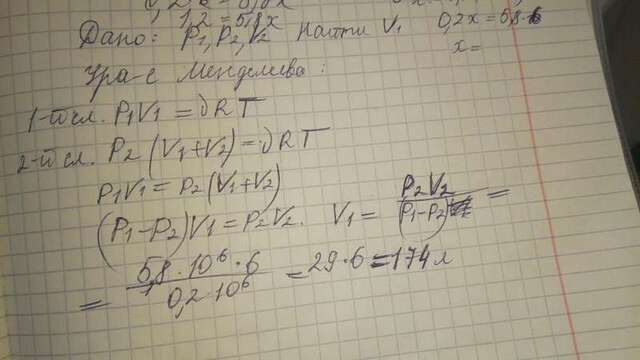 1,2 = 5,8x
Дано: P₁, P₂, V₂ Найти V₁ 0,2x = 5,8·6
x =
Ура-е Менделеева:
1-й сл. P₁V₁ = νRT
2-й сл. P₂ (V₁+V₂) = νRT
P₁V₁ = P₂(V₁+V₂)
(P₁-P₂)V₁ = P₂V₂. V₁ = P₂V₂ / (P₁-P₂) =
= 5,8·10⁶·6 / 0,2·10⁶ = 29·6 = 174 л